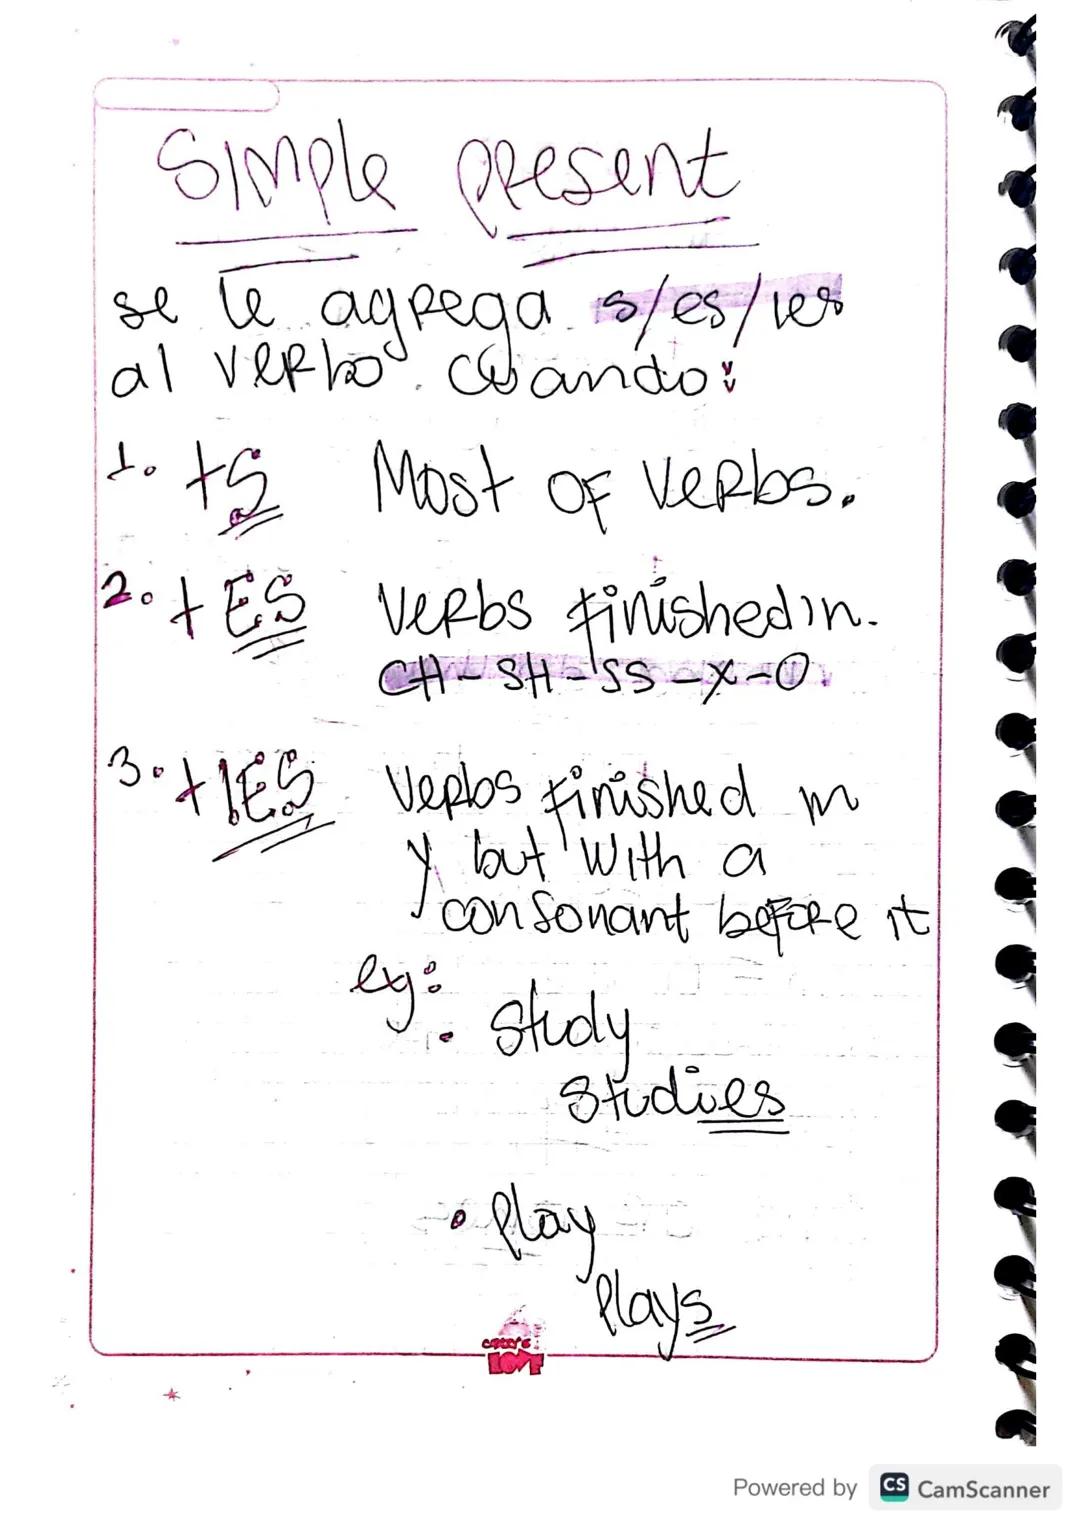 Simple present
se le agrega s/es/ies
al verbo cuando:
1. +S Most of verbs.
2. +ES Verbs finished in.
CH - SH - SS - X - O.
3. +IES Verbs finished in
y but with a
consonant before it
eg:
• Study
Studies
• Play
Plays
LOVE
Powered by CS CamScanner